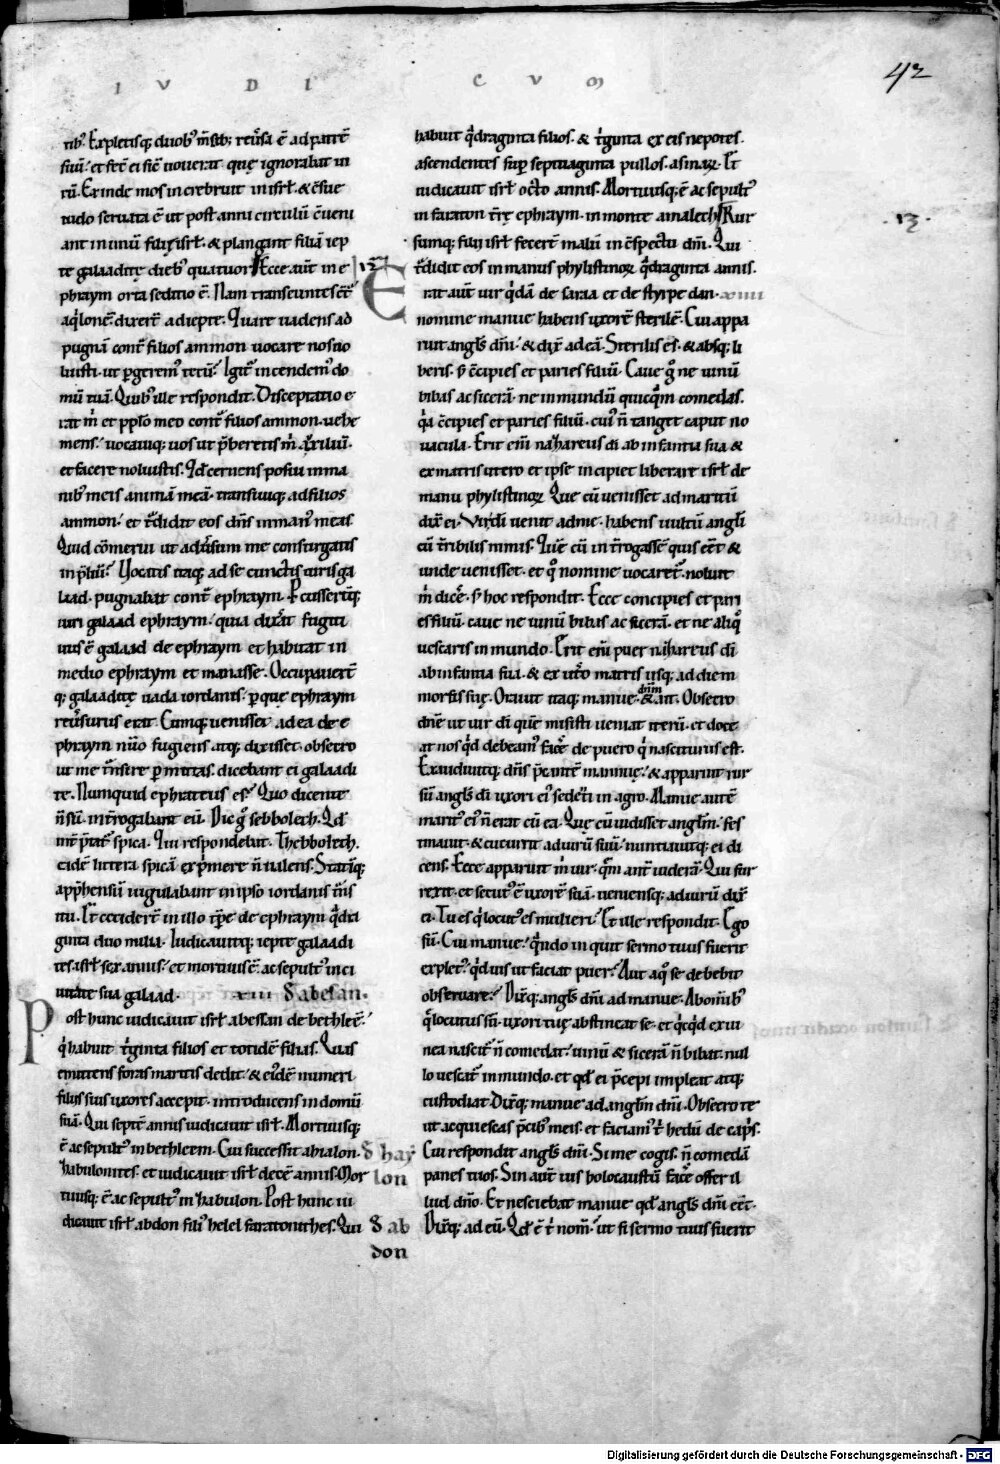 IUDI CUM
42
tib᷒. Expletisq; duob᷒ m̄sib; reūsa ē ad patrē
suū. et fec̄ ei sic̄ uouerat. quę ignorabat ui
rū. Exinde mos increbruit in isrl̄. & c̄sue
tudo seruata ē ut post anni circulū c̄ueni
ant in unū filię isrl̄. & plangant filiā iep
te galaaditę dieb᷒ quatuor. Ecce aut̄ in e
phraym orta seditio ē. Nam transeuntes c̄t᷒
aq̇lonē. dixer̄ ad iepte. Quare uadens ad
pugnā cont᷒ filios ammon uocare nos no
luisti. ut ꝑgerem᷒ tecū? Igit᷒ incendem᷒ do
mū tuā. Quib᷒ ille respondit. Disceptatio e
rat ṁ et pplo meo cont᷒ filios ammon. uehe
mens. uocauiq; uos ut p̄beretis ṁ auxiliū.
et facere noluistis. Qd̄ cernens posui in ma
nib᷒ meis animā meā. transiuiq; ad filios
ammon. et t᷒didit eos dn̄s in man᷒ meas.
Quid cōmerui ut aduīsum me consurgatis
in p̄liū? Uocatis itaq; ad se cunctis uiris ga
laad. pugnabat cont᷒ ephraym. Ꝑcusserūtq;
uiri galaad ephraym. quia dixāt fugiti
uus ē galaad de ephraym et habitat in
medio ephraym et manasse. Occupauer̄t
q; galaaditę uada iordanis. ꝑ quę ephraym
reūsurus erat. Cumq; uenisset ad ea de e
phraym num̄o fugiens atq; dixisset. obsecro
ut me t᷒nsire ꝑmittas. dicebant ei galaadi
tę. Numquid ephrateus es? Quo dicente
n̄ sū. int̄rogabant eū. Dic ḡ sebbolech. Qd̄
int̄p̄tat᷒ spica. Qui respondebat. Thebbolech.
eadē littera spicā exp̄mere n̄ ualens. Statīq;
app̄hensū iugulabant in ipso iordanis t᷒nsi
tu. Et cecider̄ in illo tp̄re de ephraym q̄dra
ginta duo milia. Iudicauitq; iepte galaadi
tes isrl̄ sex annis. et mortuus ē. ac sepult᷒ in ci
uitate sua galaad. xiii δ abesan.
Post hunc iudicauit isrl̄ abessan de bethleē.
q̇ habuit t̄ginta filios et totidē filias. Quas
emittens foras maritis dedit. & ei᷒dē numeri
filiis suis uxores accepit. introducens in domū
suā. Qui septē annis iudicauit isrl̄. Mortuusq;
ē ac sepult᷒ in bethleem. Cui successit ahialon. δ hay
habulonites. et iudicauit isrl̄ decē annis. Mor lon
tuusq; ē. ac sepult᷒ in habulon. Post hunc iu
dicauit isrl̄ abdon fili᷒ helel faratonithes. Qui δ ab
don
habuit q̄draginta filios. & t̄ginta ex eis nepotes.
ascendentes sup septuaginta pullos asinaꝝ. Et
iudicauit isrl̄ octo annis. Mortuusq; ē ac sepult᷒
in faraton t̄rę ephraym. in monte amalech. Rur
13
sumq; filii isrl̄ fecer̄t malū in c̄spectu dn̄i. Qui
t᷒didit eos in manus phylistinoꝝ q̄draginta annis.
Erat aut̄ uir q̇dā de saraa et de styrpe dan xiiii
nomine manue habens uxorē sterilē. Cui appa
ruit angl̄s dn̄i. & dix̄ ad eā. Sterilis es. & absq; li
beris. s̄ c̄cipies et paries filiū. Caue ḡ ne uinū
bibas ac sicerā. ne inmundū quicq̄m comedas.
q̇a c̄cipies et paries filiū. cui᷒ n̄ tanget caput no
uacula. Erit eni̅ nahareus di̅ ab infantia sua &
ex matris utero et ipse incipiet liberare isrl̄ de
manu phylistinoꝝ. Que cū uenisset ad maritū
dix̄ ei. Vir di̅ uenit ad me. habens uultū angl̄i
cū t̄ribilis nimis. Quē cū int̄rogassē quis eēt &
unde uenisset. et q̊ nomine uocaret᷒. noluit
ṁ dicē. s̄ hoc respondit. Ecce concipies et pari
es filiū. caue ne uinū bibas ac sicerā. et ne aliq̊
uescaris inmundo. Erit eni̅ puer nahareus di̅
ab infantia sua. & ex utēo matris usq; ad diem
mortis suę. Orauit itaq; manue dn̄m & ait. Obsecro
dn̄e ut uir di̅ quē misisti ueniat iterū. et doce
at nos q̇d debeam᷒ facē de puero q̇ nasciturus est.
Exaudiuitq; dn̄s p̄cantē manuę. & apparuit rur
sū angl̄s di̅ uxori ei᷒ sedēti in agro. Manue autē
marit᷒ ei᷒ n̄ erat cū ea. Quę cū uidisset angl̄m. fes
tinauit. & cucurrit ad uirū suū. nuntiauitq; ei di
cens. Ecce apparuit ṁ uir. q̄m ant̄ uiderā. Qui sur
rexit. et secut᷒ ē uxorē suā. ueniensq; ad uirū dix̄
ei. Tu es q̇ locut᷒ es mulieri? Et ille respondit. Ego
sū. Cui manue. q̄ndo inquit sermo tuus fuerit
explet᷒. q̇d uis ut faciat puer? Aut a quo se debebit
obseruare? Dix̄q; angl̄s dn̄i ad manue. Ab omīb᷒
q̄ locutus sū. uxori tuę abstineat se. et q̇cq̇d ex ui
nea nascit᷒ n̄ comedat. uinū & sicerā n̄ bibat. nul
lo uescat᷒ inmundo. et qd̄ ei p̄cepi impleat atq;
custodiat. Dix̄q; manue ad angl̄m dn̄i. Obsecro te
ut acquiescas p̄cib᷒ meis. et faciam᷒ t̄ hedū de cap̄s.
Cui respondit angl̄s dn̄i. Si me cogis. n̄ comedā
panes tuos. Sin aut̄ uis holocaustū facē. offer il
lud dn̄o. Et nesciebat manue qd̄ angl̄s dn̄i eēt.
Dix̄q; ad eū. Qd̄ ē t̄ nom̄. ut si sermo tuus fuerit
Digitalisierung gefördert durch die Deutsche Forschungsgemeinschaft - DFG